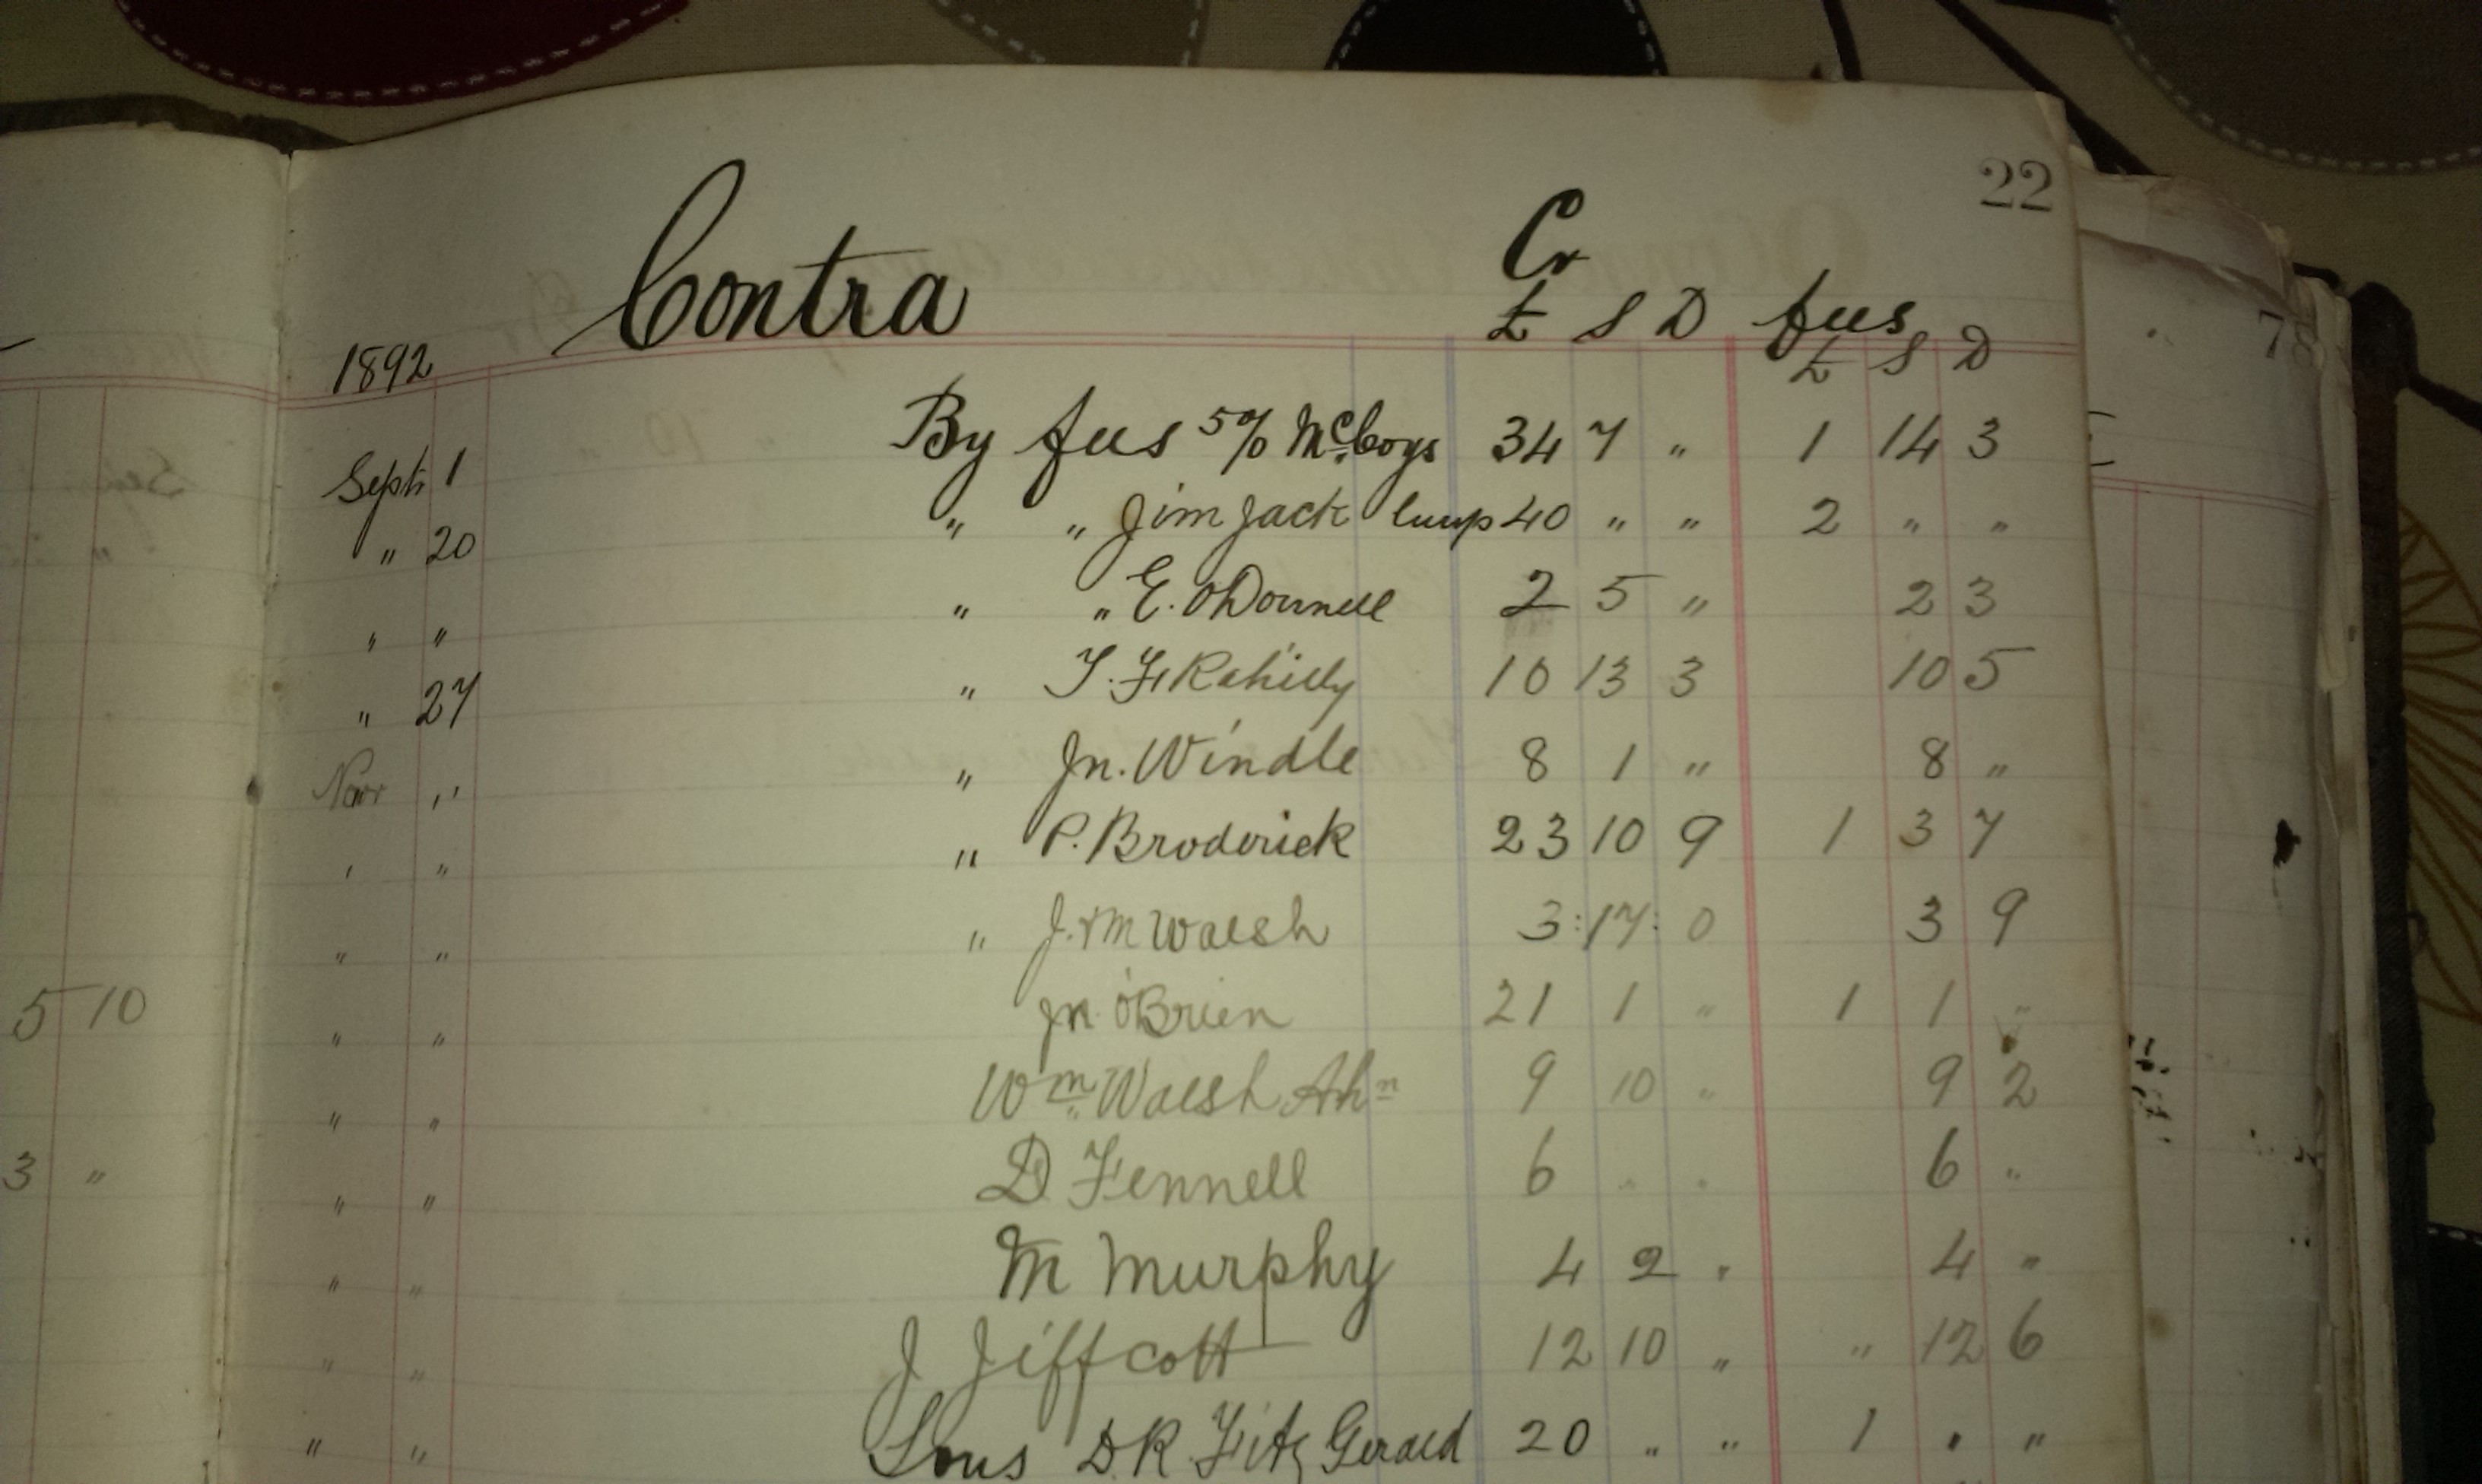 22
Contra Cr
£ S D fees
1892 £ S D
Septr 1 By fees 5% McCoys 34 7 " 1 14 3
" 20 " " Jim Jack 40 " " 2 " "
" " " " E. O'Donnell 2 5 " 2 3
" 27 " Rahilly 10 13 3 10 5
" " Jn. Windle 8 1 " 8 "
" " " P. Broderick 23 10 9 1 3 7
" " " J. M Walsh 3:17:0 3 9
" " Jn. O'Brien 21 1 " 1 1 "
5 10
" " Wm. Walsh 9 10 " 9 2
" " D Fennell 6 " " 6 "
3 "
" " M Murphy 4 2 " 4 "
" " J Jiffcott 12 10 " " 12 6
" " D.R. FitzGerald 20 " " 1 " "